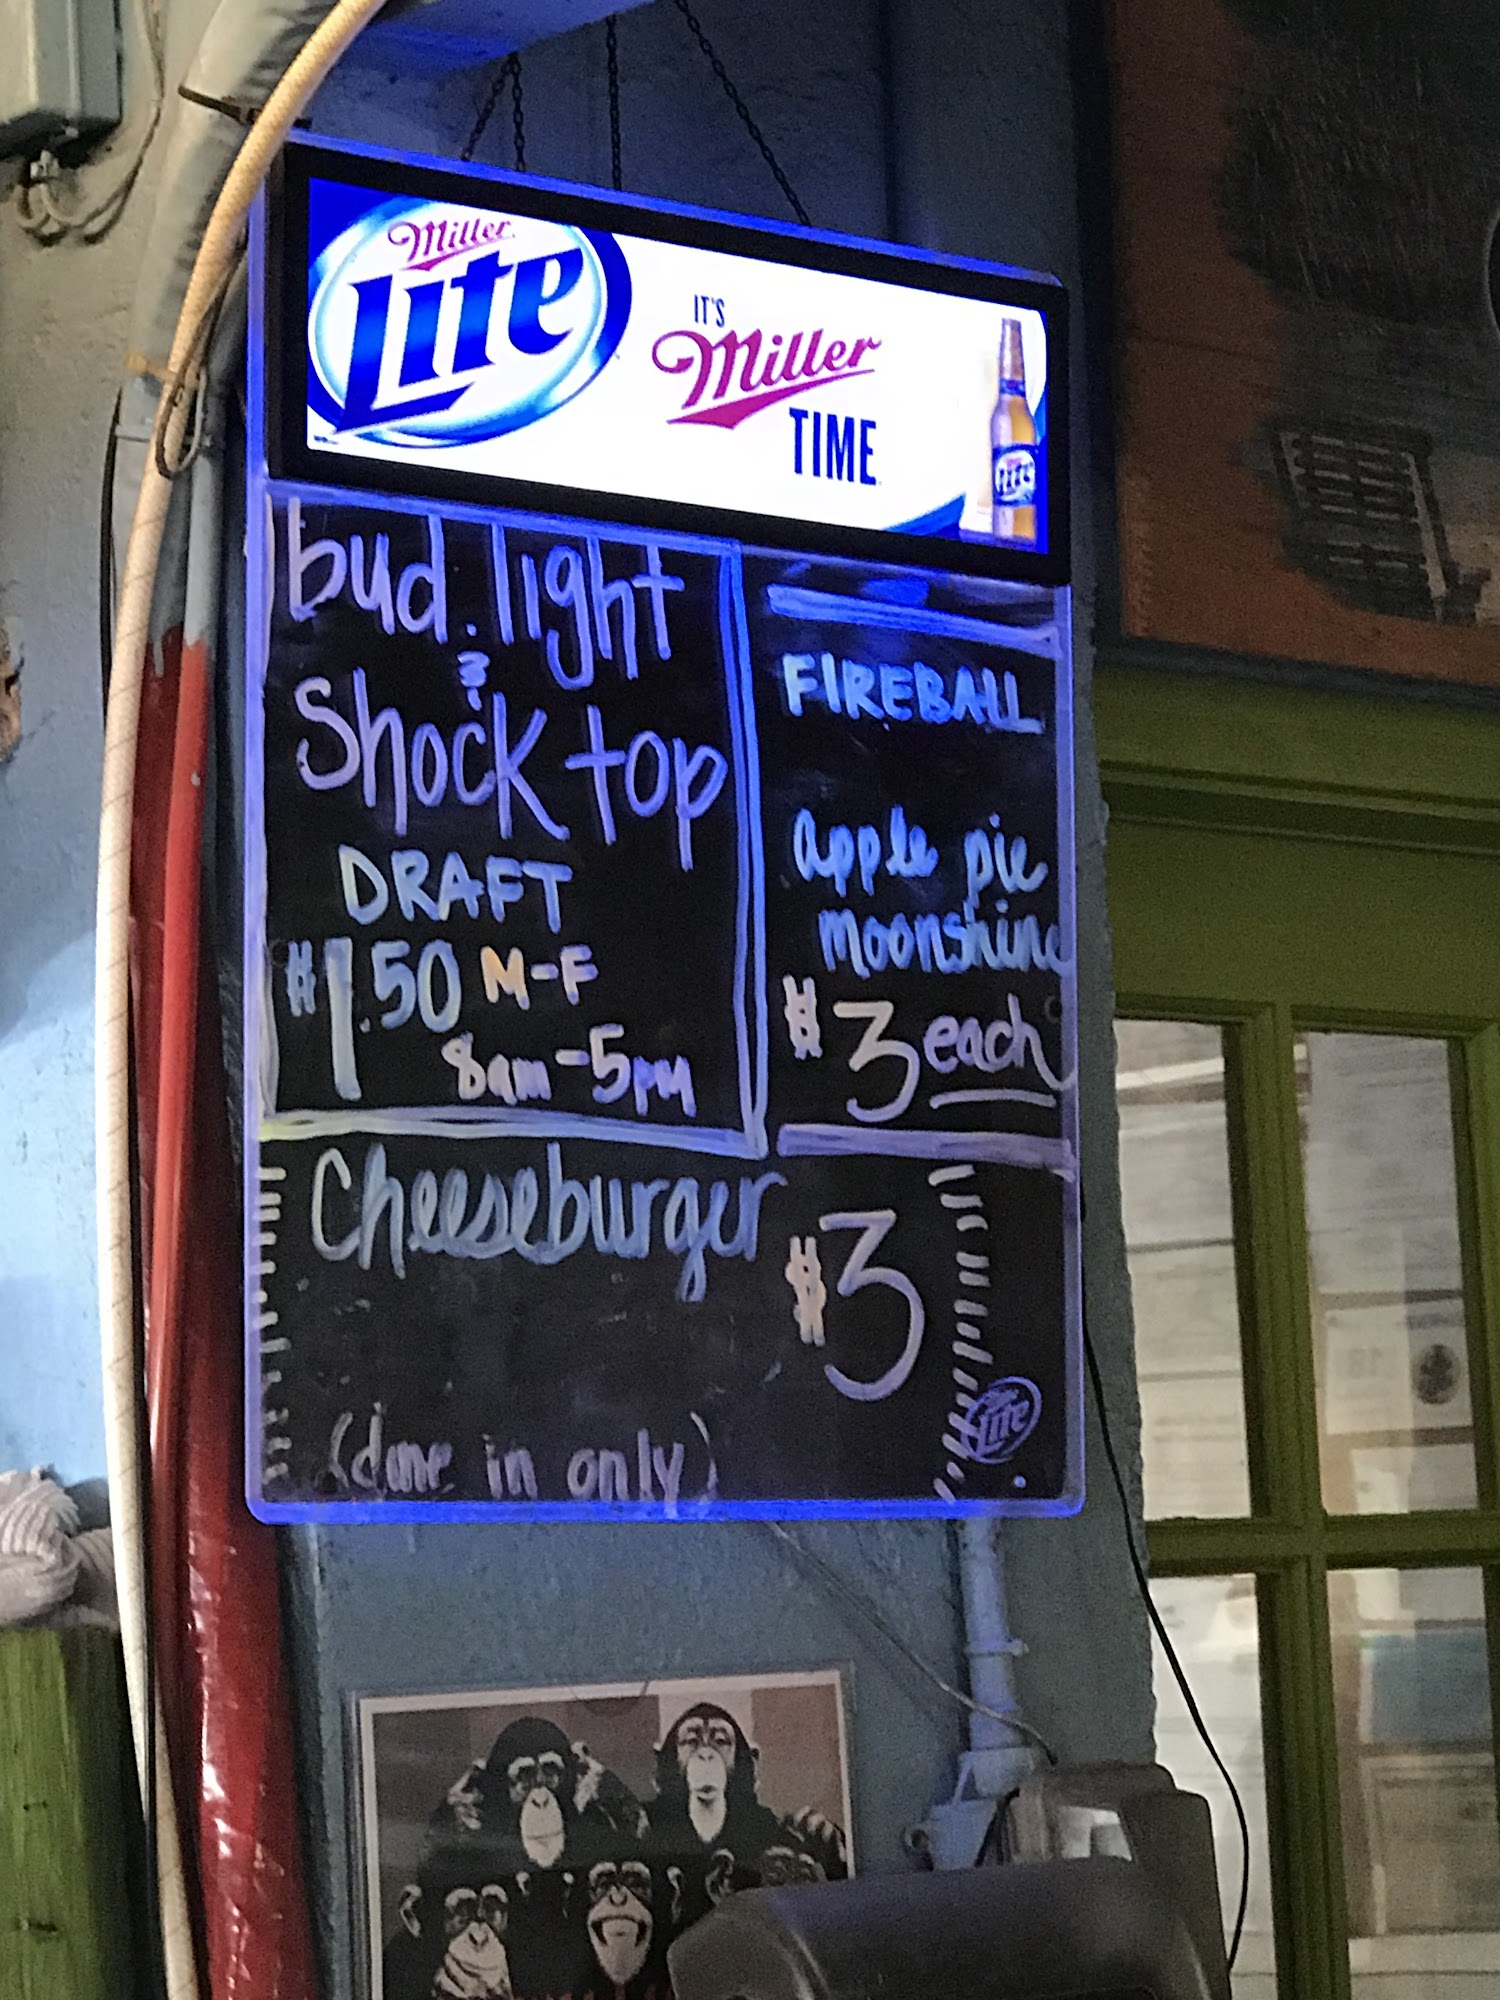 Miller
Lite
IT'S
Miller
TIME
Lite
bud. light
&
Shock top
DRAFT
$1.50 M-F
8am-5pm
FIREBALL
apple pie
moonshine
$3 each
Cheeseburger $3
(dine in only)
Lite